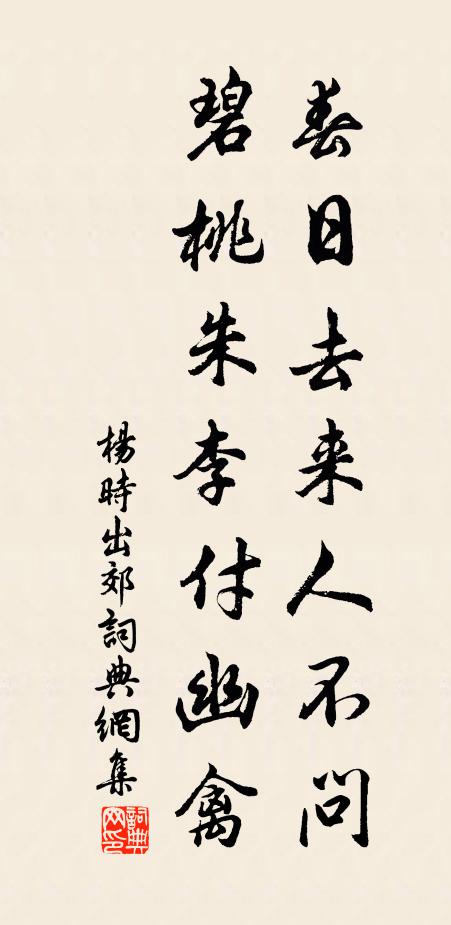 春日去来人不问
碧桃朱李付幽禽
楊時出郊詞典網集
詞典
网印